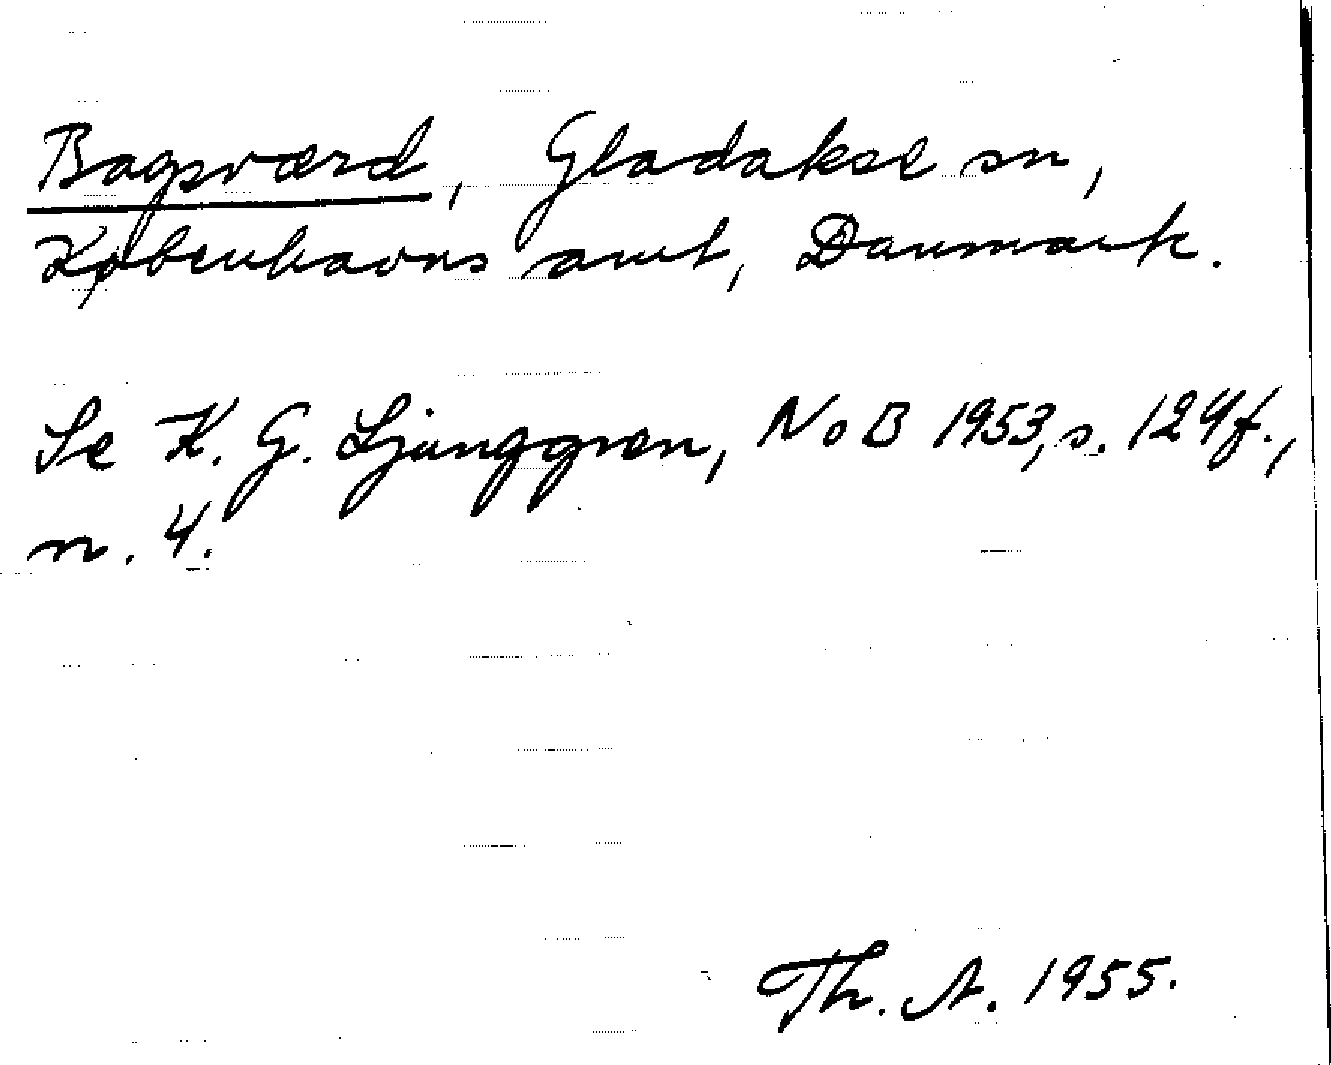 Bagsværd, Gladakse sn,
Københavns amt, Danmark.
Se K. G. Ljunggren, NoB 1953, s. 124f.,
n. 4.
Th. A. 1955.